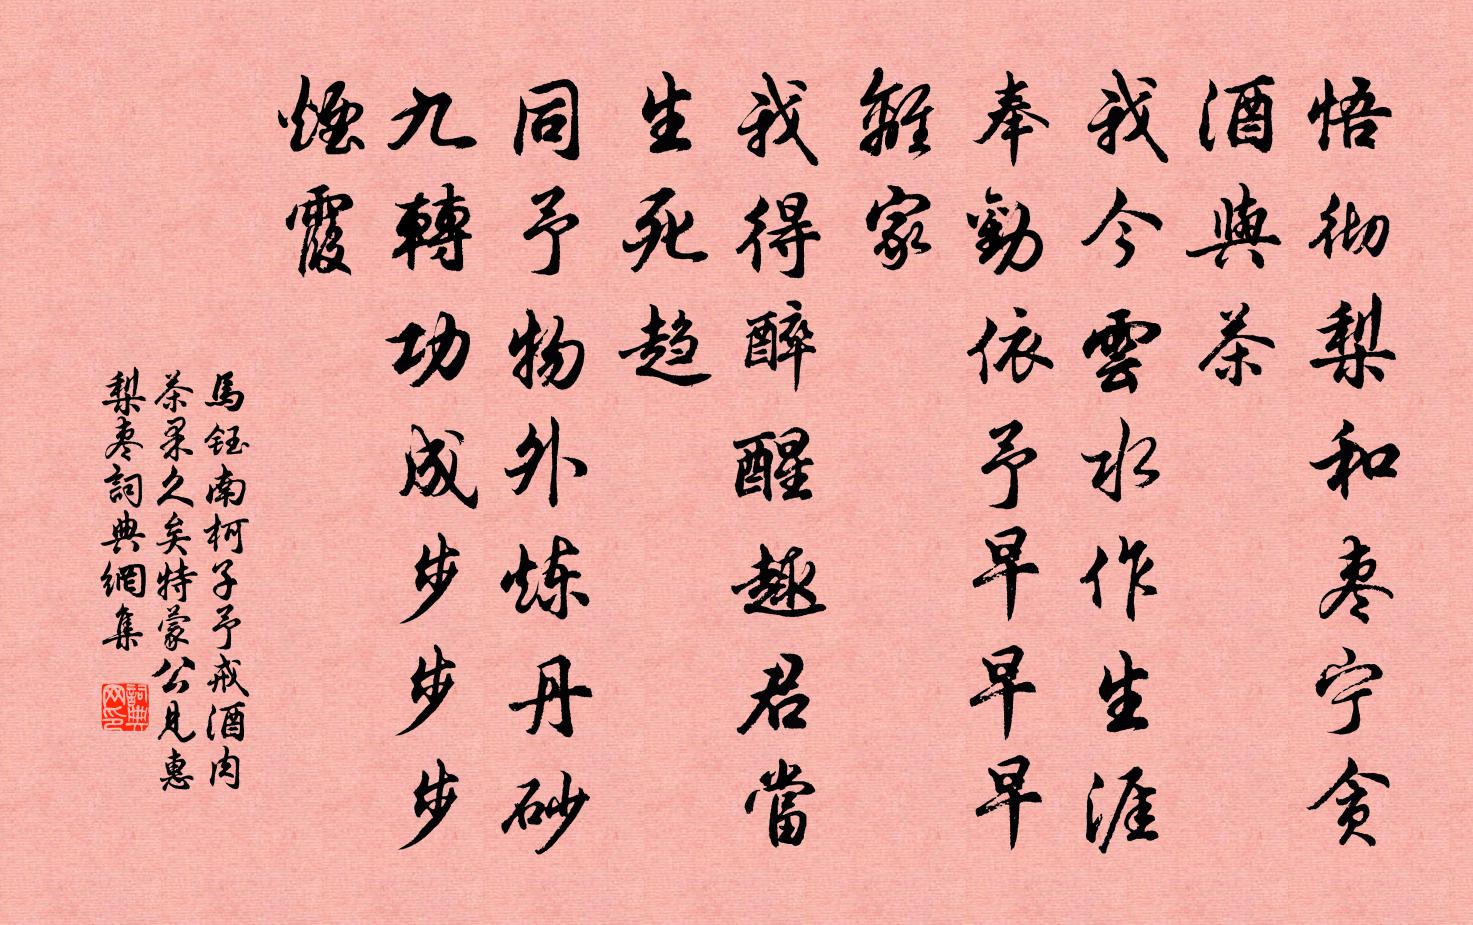 悟彻梨和枣宁贪
酒與茶
我今雲水作生涯
奉勸依予早早早
離家
我得醉醒趣君當
生死趋
同予物外炼丹砂
九轉功成步步步
煙霞
馬鈺南柯子予戒酒肉
茶果久矣特蒙公見惠
梨枣詞典網集
詞典网印